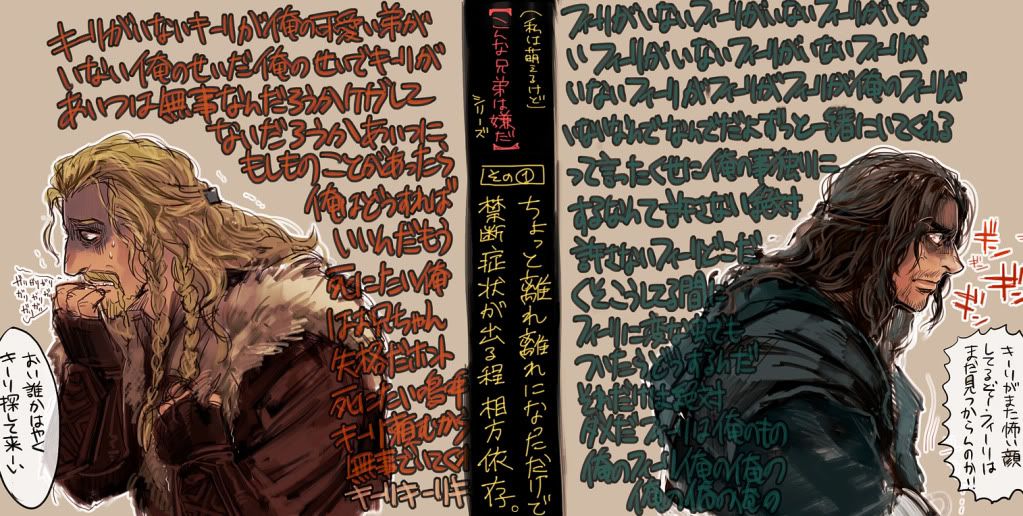 キーリがいないキーリが俺の可愛い弟が
いない俺のせいだ俺のせいでキーリが
あいつは無事なんだろうかケガして
ないだろうかあいつに
もしものことがあったら
俺はどうすれば
いいんだもう
死にたい俺
はお兄ちゃん
失格だホント
死にたい
キーリ頼むから
無事でいてくれ
キーリキーリキ
おい誰かはやく
キーリ探して来ーい
(私は萌えるけど)
【こんな兄弟は嫌だ】
シリーズ
その①
ちょっと離れ離れになっただけで
禁断症状が出る程相方依存。
フィーリがいないフィーリがいないフィーリがいな
いフィーリがいないフィーリがいないフィーリが
いないフィーリがフィーリがフィーリが俺のフィーリが
いないなんでなんでだよずっと一緒にいてくれる
って言ったくせに俺の事独りに
するなんて許さない絶対
許さないフィーリどこだ
くそこうしてる間に
フィーリに変な虫でも
ついたらどうするんだ
それだけは絶対
ダメだフィーリは俺のもの
俺のフィーリ俺の俺の
俺の俺の俺の
ギンギン
キーリがまた怖い顔
してるぞー・フィーリは
まだ見つからんのか!!